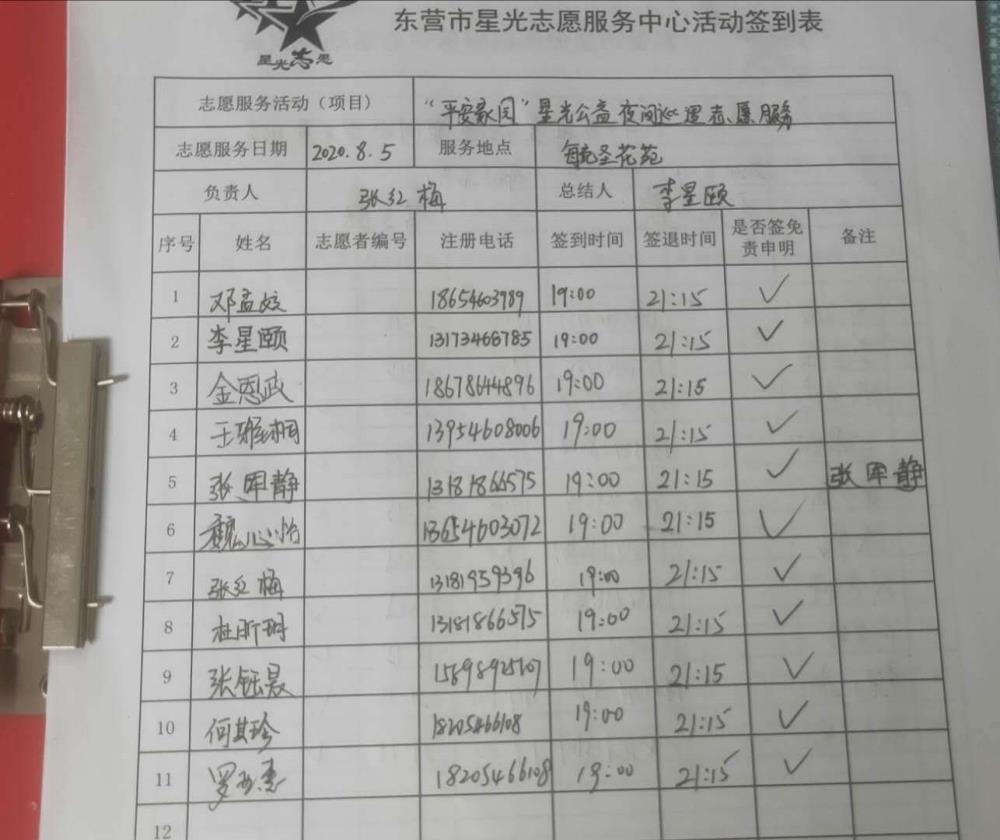 星光志愿
东营市星光志愿服务中心活动签到表
志愿服务活动（项目） “平安家园”星光公益夜间巡逻志愿服务
志愿服务日期 2020.8.5 服务地点 圣花苑
负责人 张红梅 总结人 李星颐
序号 姓名 志愿者编号 注册电话 签到时间 签退时间 是否签免责申明 备注
1 邓孟姣 18654603989 19:00 21:15 ✓
2 李星颐 13173468785 19:00 21:15 ✓
3 金恩政 18678644896 19:00 21:15 ✓
4 王雅桐 13954608006 19:00 21:15 ✓
5 张军静 13181866575 19:00 21:15 ✓ 张军静
6 魏心怡 13654603072 19:00 21:15 ✓
7 张红梅 13181959396 19:00 21:15 ✓
8 杜昕玥 13181866575 19:00 21:15 ✓
9 张钰晨 19:00 21:15 ✓
10 何其珍 18205466108 19:00 21:15 ✓
11 18205466108 19:00 21:15 ✓
12